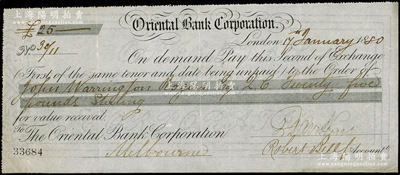 上海阳明拍卖
Oriental Bank Corporation.
£ 25
No 30/11
London 17 January 1880
On demand Pay this Second of Exchange
First of the same tenor and date being unpaid to the Order of
John Warrington Twenty five
pounds Sterling
for value received.
To The Oriental Bank Corporation
Melbourne
Robert Accountt
33684